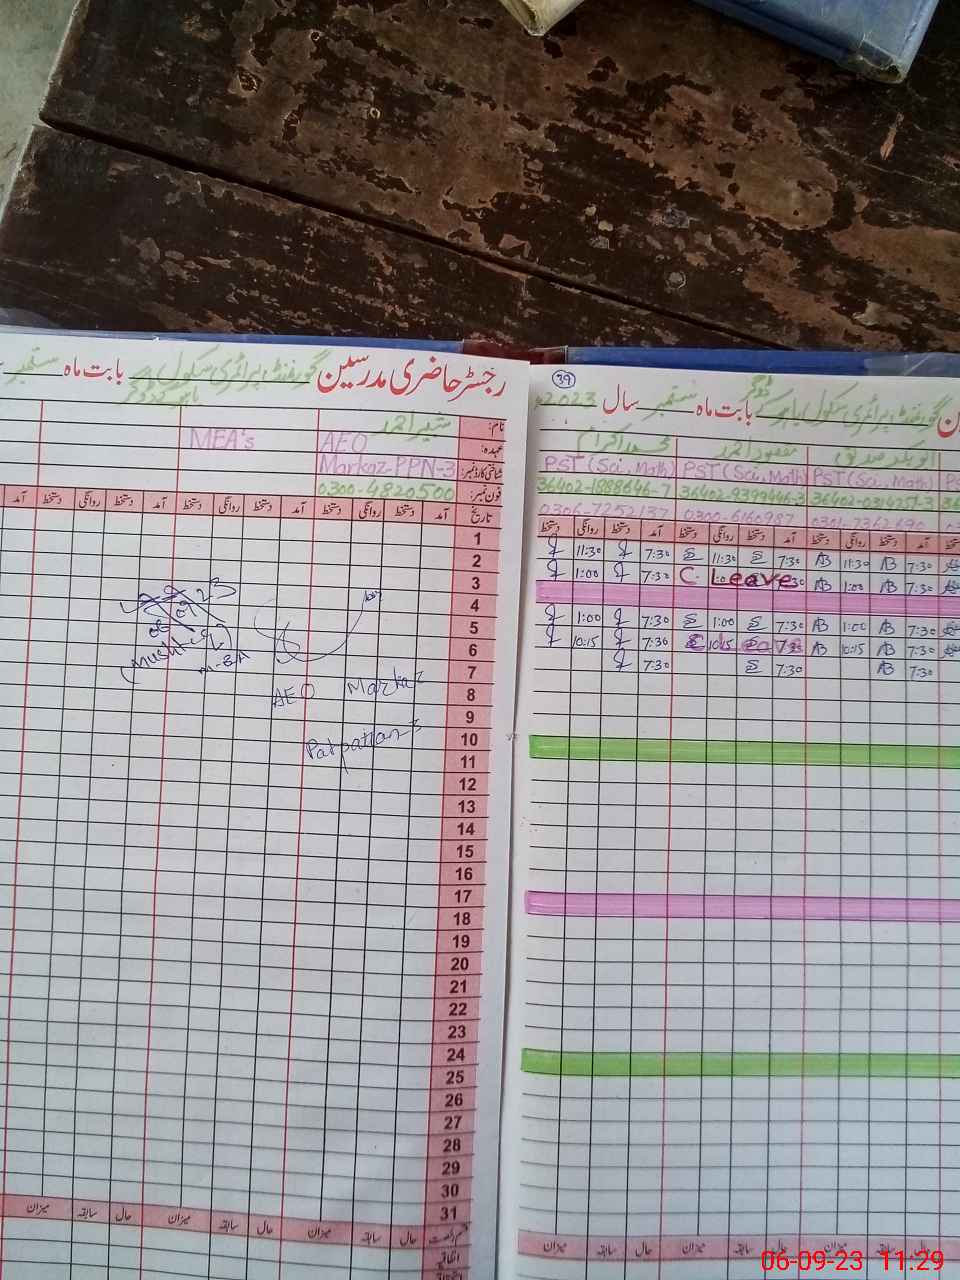 رجسٹر حاضری مدرسین گورنمنٹ پرائمری سکول بابت ماہ ستمبر
نام: شبیر احمد
عہدہ: AEO MEA's
شناختی کارڈ نمبر: Markaz-PPN-3
فون نمبر: 0300-4820500
تاریخ آمد دستخط روانگی دستخط آمد دستخط روانگی دستخط آمد دستخط روانگی دستخط آمد
1
2
3
4
5
6
7
8
9
10
11
12
13
14
15
16
17
18
19
20
21
22
23
24
25
26
27
28
29
30
31
06 09 23
M-EA
AEO Markaz
Pakpattan-3
حال سابقہ میزان حال سابقہ میزان حال سابقہ میزان
اتفاقیہ
39
گورنمنٹ پرائمری سکول بابت ماہ ستمبر سال 2023
ابوبکر صدیق مقصود احمد محمد اکرام
PST (Sci, Math) PST (Sci, Math) PST (Sci, Math)
36402-1888646-7 36402-9399446-3 36402-0314257-3
0306-7252137 0300-6160987 0301-7362690
آمد دستخط روانگی دستخط آمد دستخط روانگی دستخط آمد دستخط روانگی دستخط
11:30 7:30 11:30 7:30 AB 11:30 AB 7:30
1:00 7:30 C. Leave AB 1:00 AB 7:30
1:00 7:30 1:00 7:30 AB 1:00 AB 7:30
10:15 7:30 10:15 AB 10:15 AB 7:30
7:30 7:30 AB 7:30
حال سابقہ میزان حال سابقہ میزان
06-09-23 11:29